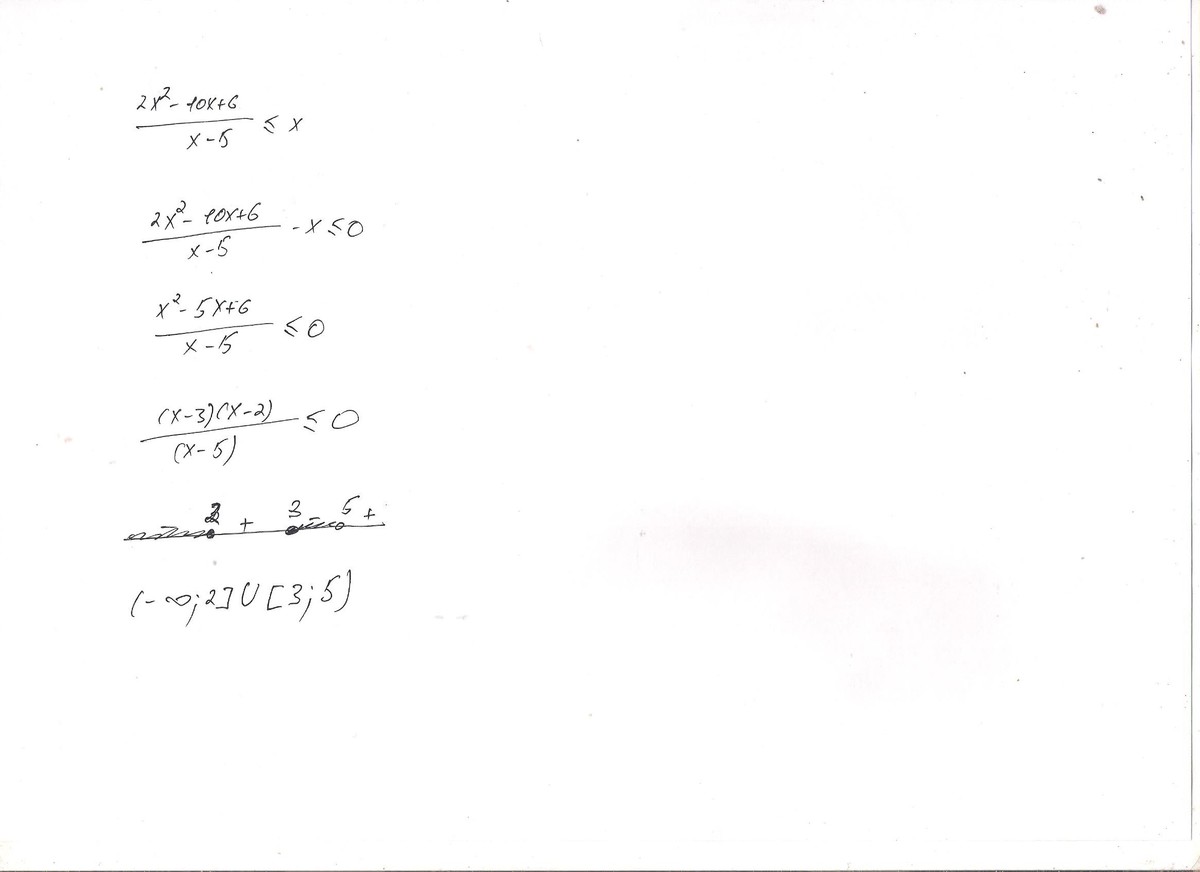 (2x² - 10x + 6)/(x - 5) ≤ x
(2x² - 10x + 6)/(x - 5) - x ≤ 0
(x² - 5x + 6)/(x - 5) ≤ 0
((x - 3)(x - 2))/((x - 5)) ≤ 0
- 2 + 3 - 5 +
(-∞; 2] ∪ [3; 5)